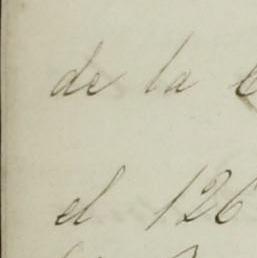 de la
el 126